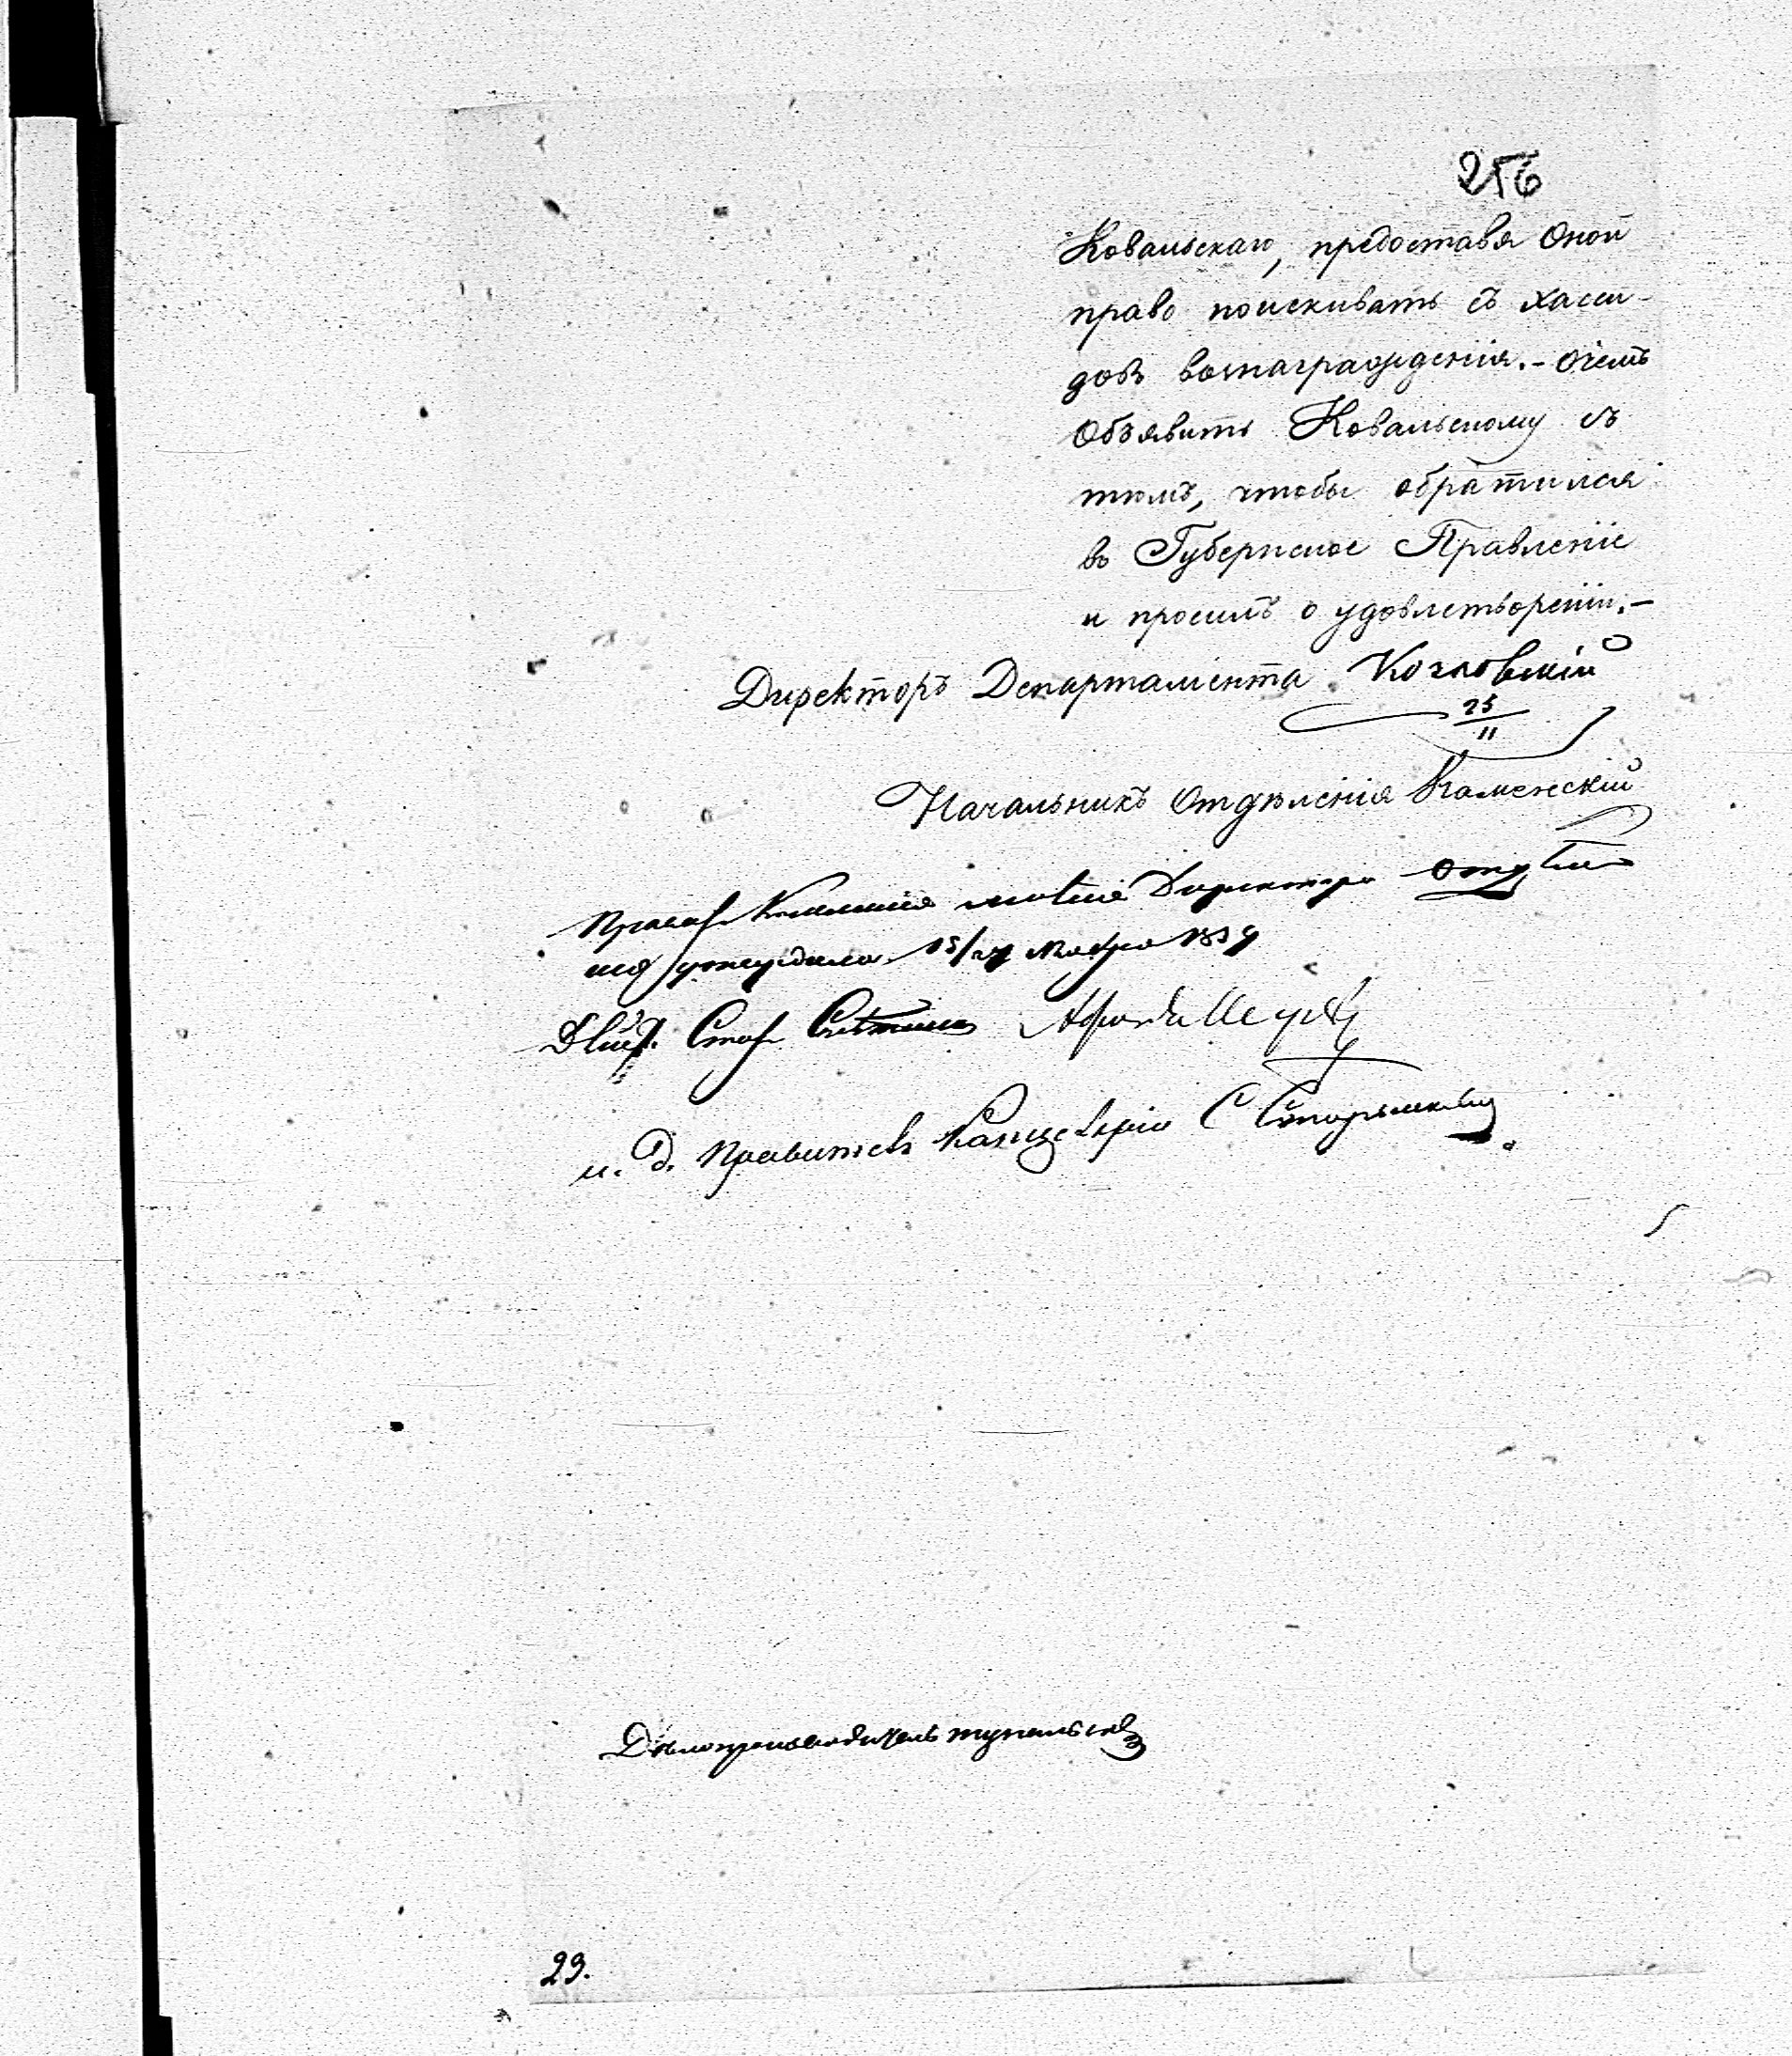 256
Ковальскаго, предоставя Оной
право поискивать съ хасси-
довъ вознагражденія. - О чемъ
Объявить Ковальскому съ
тѣмъ, чтобы обратился
въ Губернское Правленіе
и просилъ о удовлетвореніи. -
Директоръ Департамента Козловскій
25
11
Начальникъ Отдѣленія Каменскій
Директора
утвердила 15/27 Ноября 1839
Стат.
и. д. Правителя Канцеляріи
Дѣлопроизводитель
29.